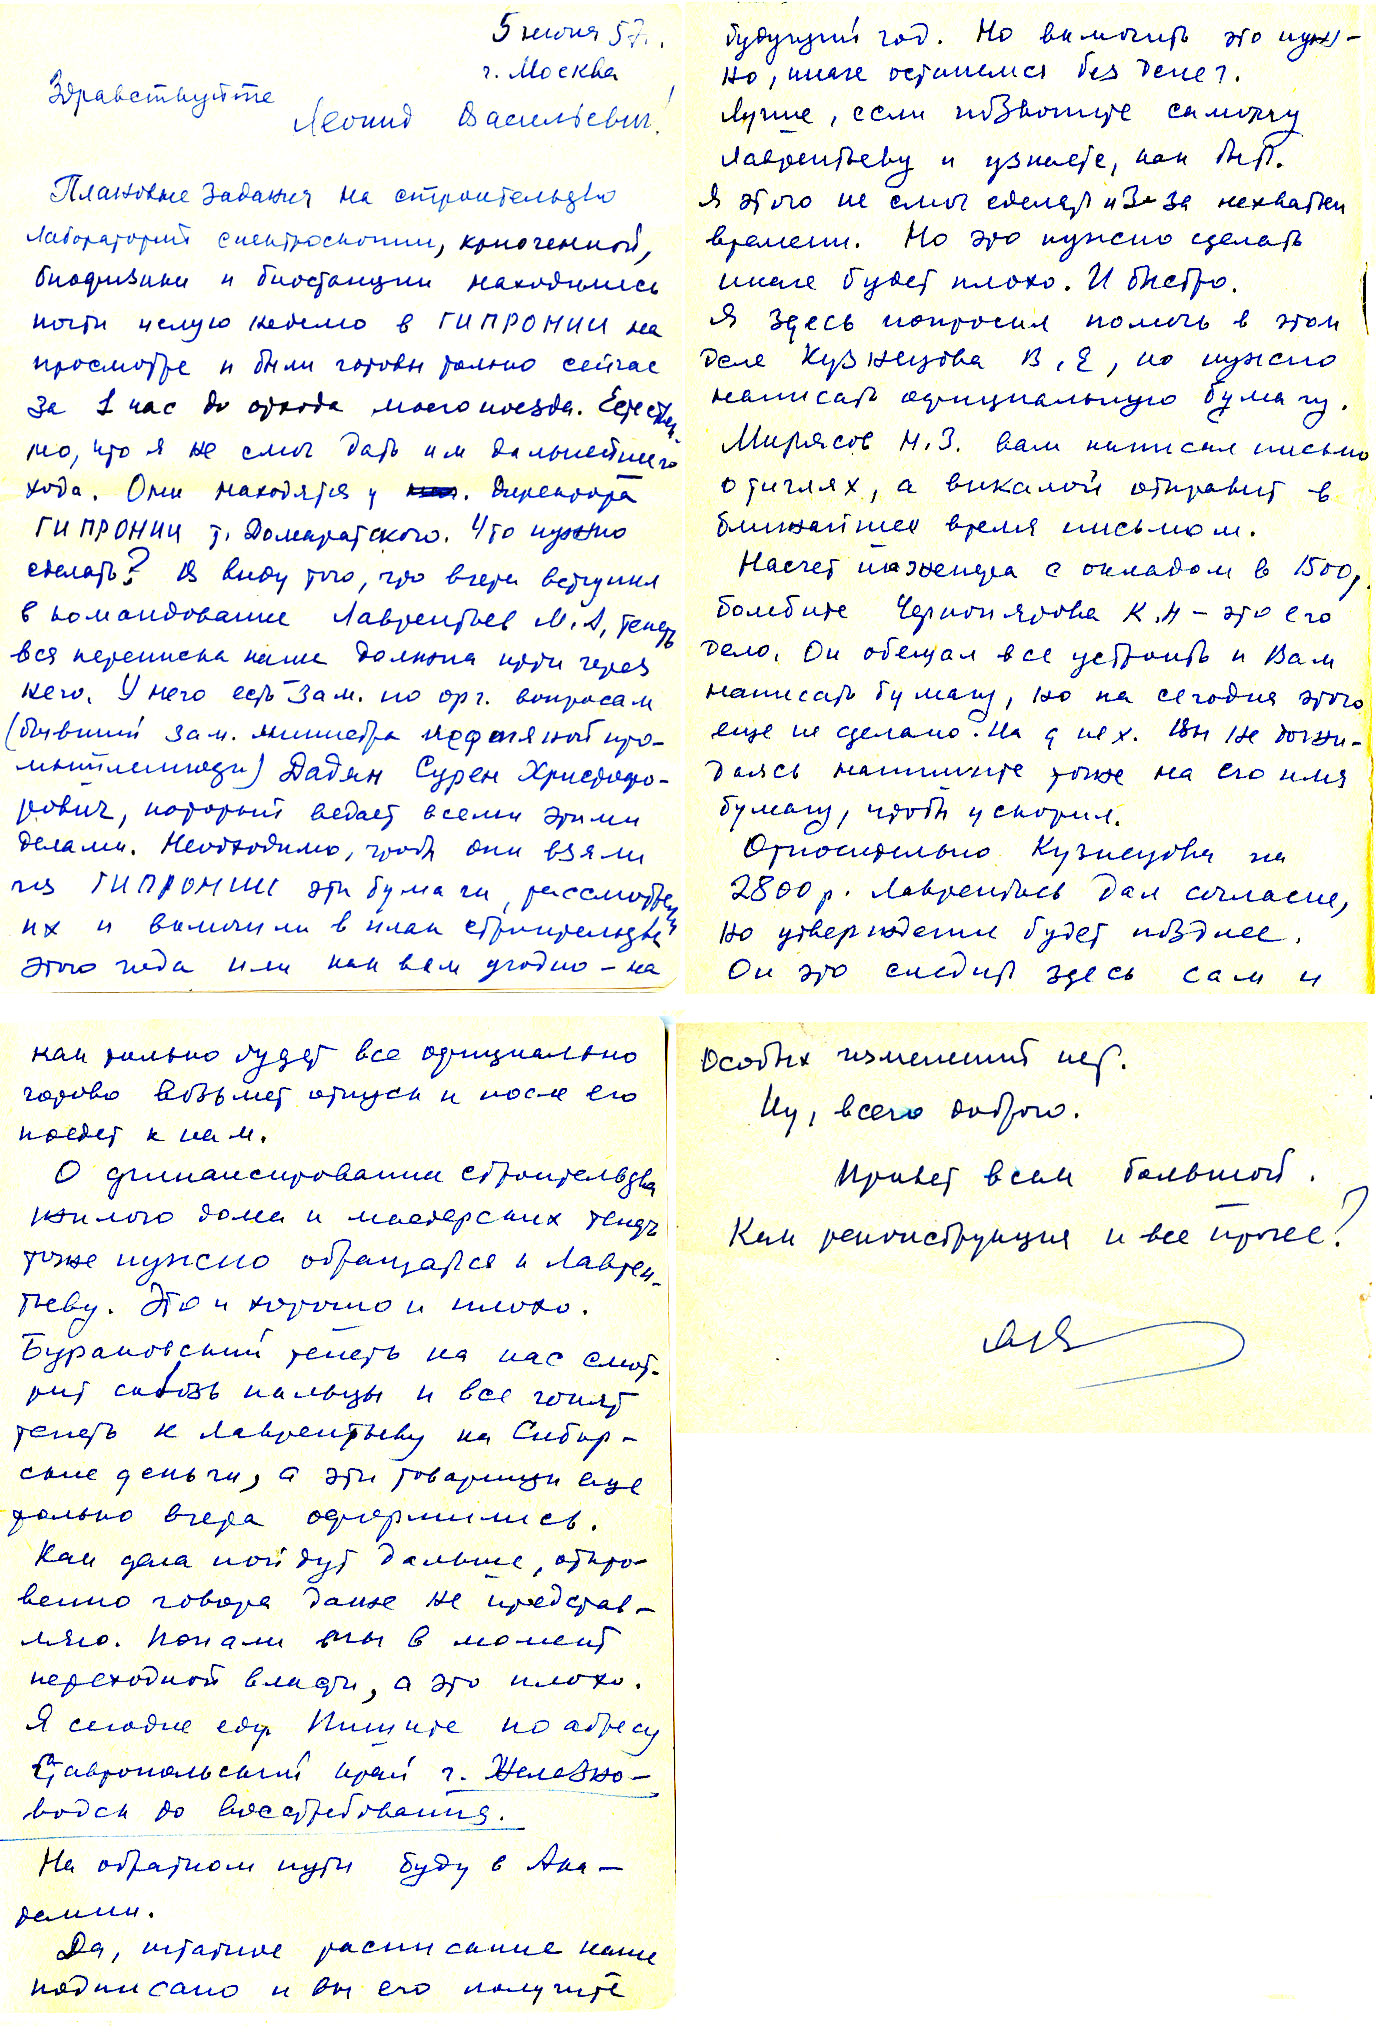 5 июня 57г.
г. Москва
Здравствуйте
Леонид Васильевич!
Плановые задания на строительство
лабораторий спектроскопии, криогенной,
биофизики и биостанции находились
почти целую неделю в ГИПРОНИИ на
просмотре и были готовы только сейчас
за 1 час до отхода моего поезда. Естествен-
но, что я не смог дать им дальнейшего
хода. Они находятся у директора
ГИПРОНИИ т. Домаратского. Что нужно
сделать? В виду того, что вчера вступил
в командование Лаврентьев М.А, теперь
вся переписка наша должна идти через
него. У него есть зам. по орг. вопросам
(бывший зам. министра нефтяной про-
мышленности) Дадян Сурен Христофо-
рович, который ведает всеми этими
делами. Необходимо, чтобы они взяли
из ГИПРОНИИ эти бумаги, рассмотрели
их и включили в план строительства
этого года или как вам угодно – на
будущий год. Но включить это нуж-
но, иначе останемся без денег.
Лучше, если позвоните самому
Лаврентьеву и узнаете, как быть.
Я этого не смог сделать из-за нехватки
времени. Но это нужно сделать
иначе будет плохо. И быстро.
Я здесь попросил помочь в этом
деле Кузнецова В.Е, но нужно
написать официальную бумагу.
Мирясов Н.З. вам написал письмо
о тиглях, а викалой отправит в
ближайшее время письмом.
Насчет инженера с окладом в 1500р.
бомбите Черноиятова К.Н – это его
дело. Он обещал все устроить и Вам
написать бумагу, но на сегодня этого
еще не сделано. На днех. Вы не дожи-
даясь напишите тоже на его имя
бумагу, чтобы ускорил.
Относительно Кузнецова на
2800р. Лаврентьев дал согласие,
но утверждение будет позднее.
Он это следит здесь сам и
как только будет все официально
готово возьмет отпуск и после его
поедет к нам.
О финансировании строительства
жилого дома и мастерских теперь
тоже нужно обращаться к Лаврен-
тьеву. Это и хорошо и плохо.
Бурановский теперь на нас смот-
рит сквозь пальцы и все гонят
теперь к Лаврентьеву на Сибир-
ские деньги, а эти товарищи еще
только вчера оформились.
Как дела пойдут дальше, откро-
венно говоря даже не представ-
ляю. Попали мы в момент
переходной власти, а это плохо.
Я сегодня еду. Пишите по адресу
Ставропольский край г. Железно-
водск до востребования.
На обратном пути буду в Ака-
демии.
Да, штатное расписание наше
подписано и вы его получите
Особых изменений нет.
Ну, всего доброго.
Привет всем большой.
Как реконструкция и все прочее?